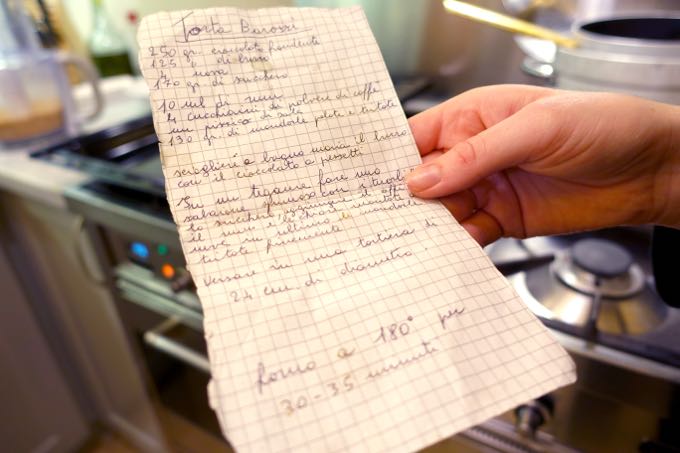 Torta Barozzi
250 gr. cioccolato fondente
125 g. di burro
4 uova
170 gr di zucchero
10 ml di rum
4 cucchiaini di polvere di caffè
un pizzico di sale
130 gr. di mandorle pelate e tostate
sciogliere a bagno maria il burro
con il cioccolato a pezzetti
In un tegame fare uno
zabaione spumoso con i tuorli
lo zucchero,
il rum e
neve
tostate finemente
versare in una tortiera di
24 cm. di diametro.
forno a 180° per
30-35 minuti